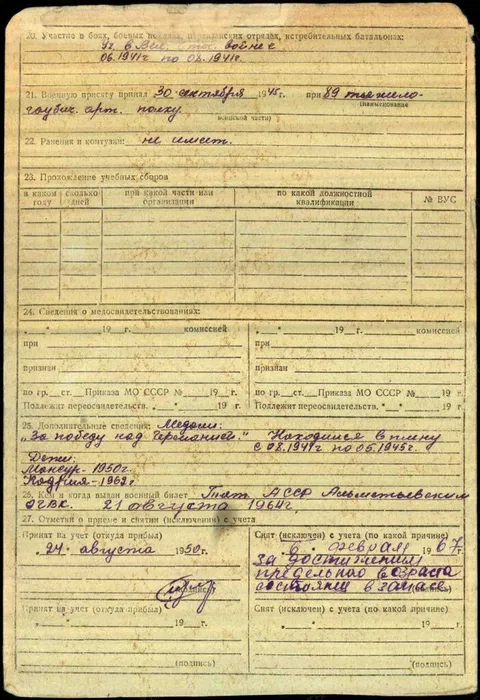 20. Участие в боях, боевых походах, партизанских отрядах, истребительных батальонах:
Уч. в Вел. Отеч. войне с
06.1941г по 08.1941г.
21. Военную присягу принял 30 октября 1945г. при 89 тяжело-
(наименование
гаубич. арт. полку.
воинской части)
22. Ранения и контузии: не имеет.
23. Прохождение учебных сборов
в каком году
сколько дней
при какой части или организации
по какой должностной квалификации
№ ВУС
24. Сведения о медосвидетельствованиях:
„ “ 19 г. комиссией
при
признан
по гр. ст. Приказа МО СССР № 19 г.
Подлежит переосвидетельств. „ “ 19 г.
„ “ 19 г. комиссией
при
признан
по гр. ст. Приказа МО СССР № 19 г.
Подлежит переосвидетельств. „ “ 19 г.
25. Дополнительные сведения: Медаль:
„За победу над Германией." Находился в плену
с 08.1941г по 05.1945г.
Дети:
Мансур-1950г.
Кадрия-1963г
26. Кем и когда выдан военный билет Тат. АССР Альметьевским
ОГВК. 21 августа 1964г.
27. Отметки о приеме и снятии (исключении) с учета
Принят на учет (откуда прибыл)
„24" августа 1950г.
(подпись)
Снят (исключен) с учета (по какой причине)
„6" февраля 1967г.
за достижением
предельного возраста
состояния в запасе
(подпись)
Принят на учет (откуда прибыл)
„ “ 19 г.
(подпись)
Снят (исключен) с учета (по какой причине)
„ “ 19 г.
(подпись)